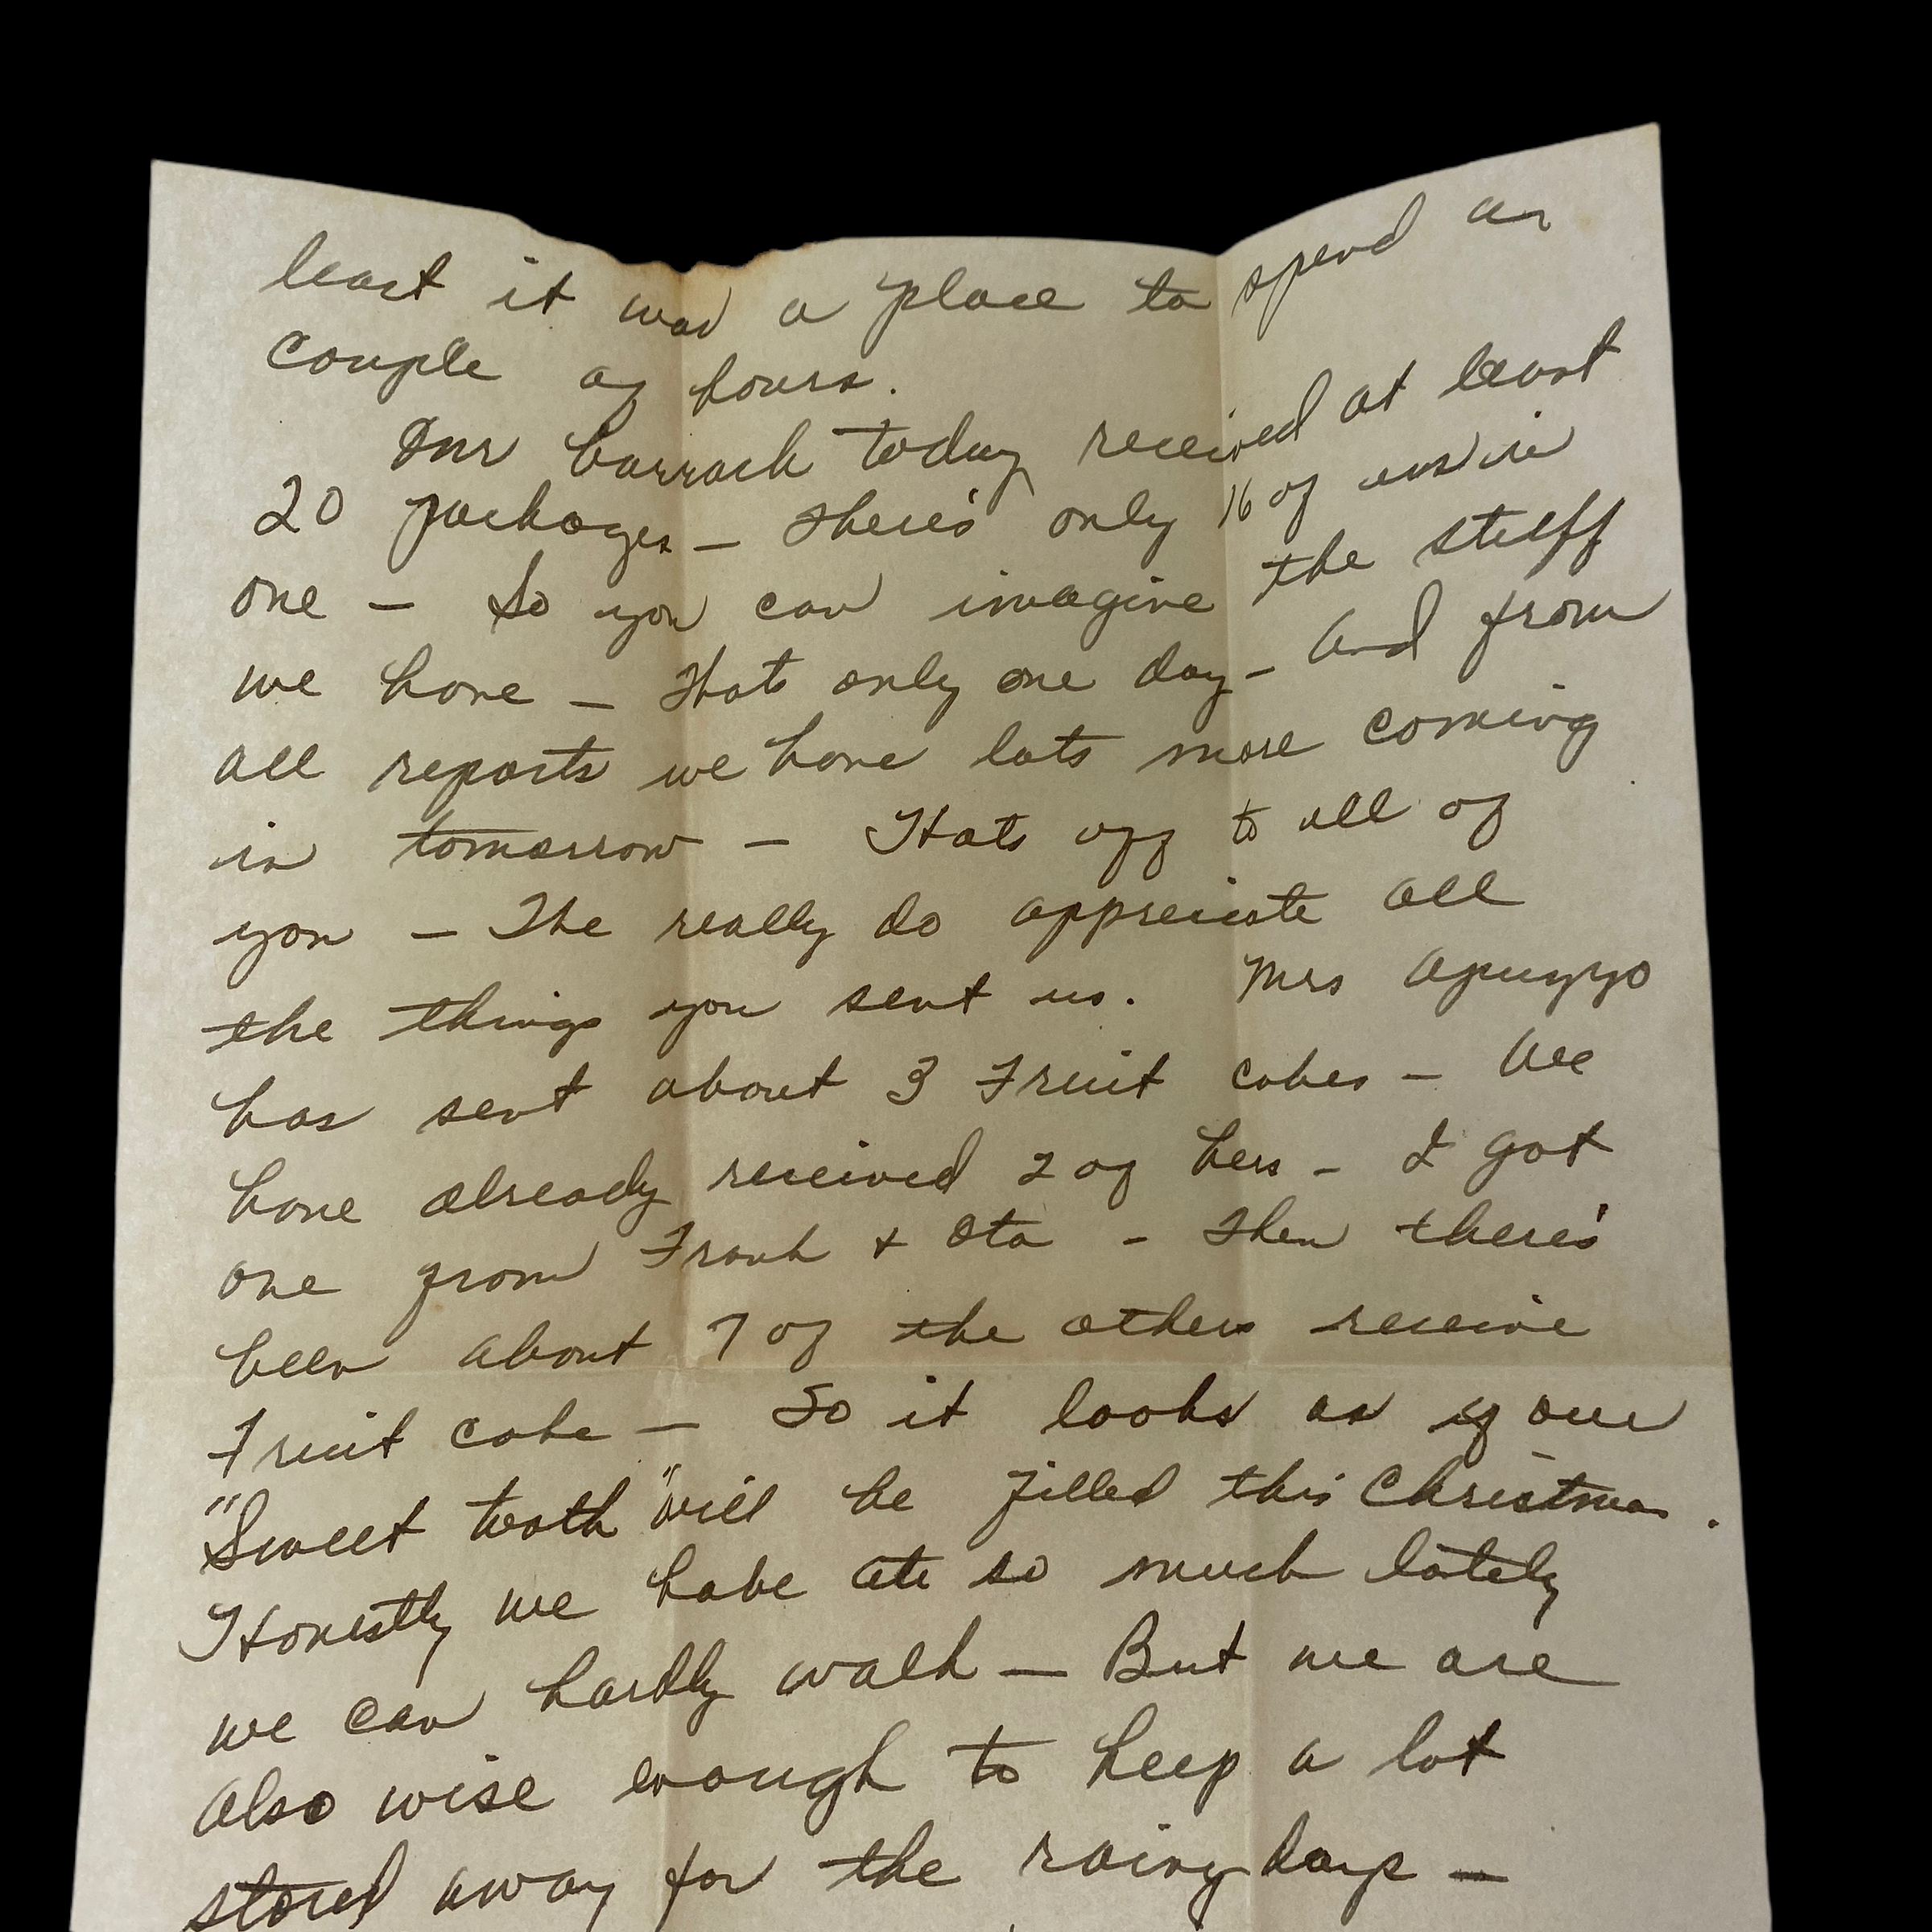 least it was a place to spend a
couple of hours.
Our barrack today received at least
20 packages — there's only 16 of us in
one — So you can imagine the stuff
we have — Thats only one day — And from
all reports we have lots more coming
in tomorrow — Hats off to all of
you — The really do appreciate all
the things you sent us. Mrs Apuzzo
has sent about 3 Fruit cakes — We
have already received 2 of hers — I got
one from Frank & Eta — Then there's
been about 7 of the others receive
Fruit cake — So it looks as if our
"Sweet tooth" will be filled this Christmas.
Honestly we have ate so much lately
we can hardly walk — But we are
also wise enough to keep a lot
stored away for the rainy days —